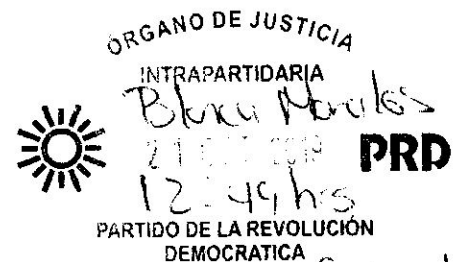 ÓRGANO DE JUSTICIA
INTRAPARTIDARIA
Blanca Morales
21 2019
PRD
12:49 hrs
PARTIDO DE LA REVOLUCIÓN
DEMOCRATICA